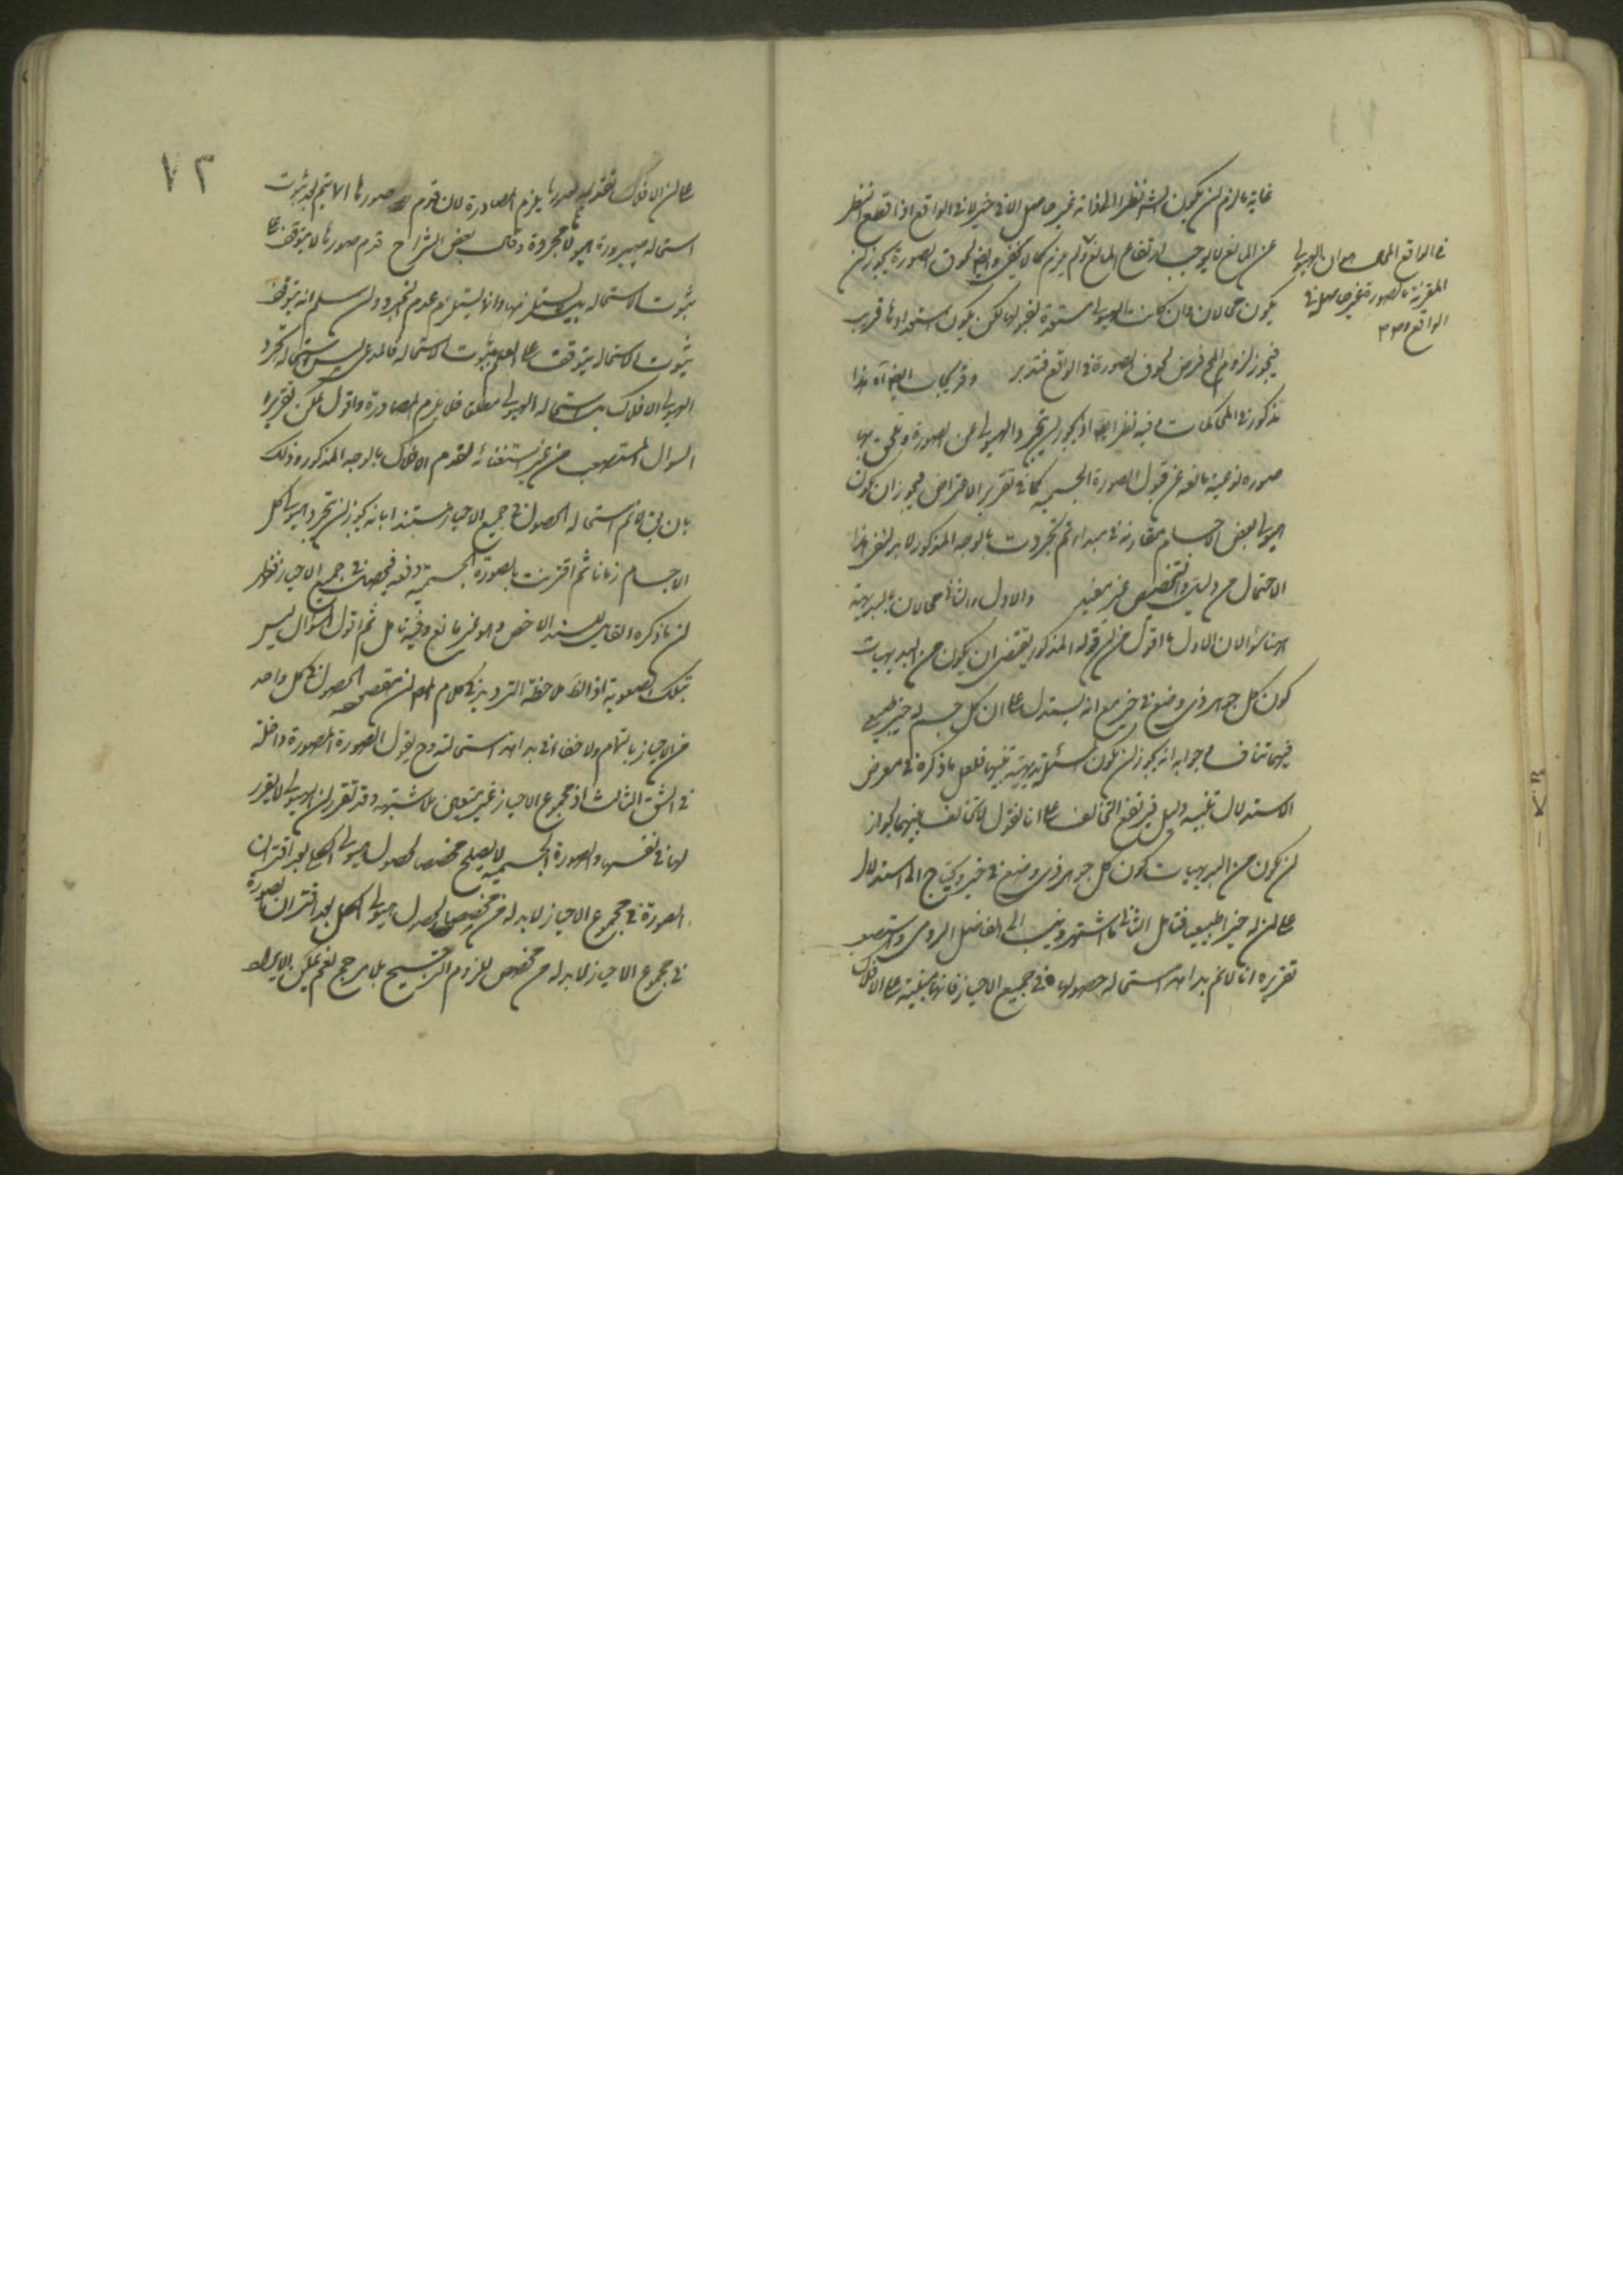 غاية ما لزم ان يكون الشئ نظرا الى ذاته غير حاصل الا فى حيز لا فى الواقع اذا قطع النظر
عن المانع لا يوجب ارتفاع المانع ولم يلزم كما لا يخفى وايضا لحوق الصورة يجوز ان
يكون محالا وان كانت الهيولى مستعدة لقبولها لكن يكون استعدادها قريب
فيجوز لزوم المح فرض لحوق الصورة فى الواقع فتدبر وقد يجاب ايضا آه هذا
مذكور فى المحاكمات وفيه نظر ايضا اذ يجوز ان تجرد الهيولى عن الصورة وتلحق بها
صورة نوعية مانعة عن قبول الصورة الجسمية كما فى تقرير الاعتراض فيجوز ان يكون
هيولى بعض الاجسام مقارنة فى مبدا ثم تجردت بالوجه المذكور لا بد لنفى هذا
الاحتمال من دليل والتخصيص غير مفيد والاول والثانى محالان بالبديهة
ههنا سؤالان الاول ما اقول من ان قوله المذكور يقتضى ان يكون من البديهيات
كون كل جوهر ذى وضع فى حيز مع انه يستدل على ان كل جسم له حيز طبيعى
فبينهما تناف وجوابه انه يجوز ان يكون المسئلة بديهية تنبيها فلعل ما ذكره فى معرض
الاستدلال تنبيه لا دليل فيرتفع التخالف على انا نقول لا تخالف بينهما لجواز
ان يكون من البديهيات كون كل جوهر ذى وضع فى حيز ويحتاج الى استدلال
على ان له حيزا طبيعيا فتامل الثانى ما اشتهر وينسب الى الفاضل الرومى واستصعب
تقريره انا لا نم بداهة استحالة حصولها فى جميع الاحياز فانها مبنية على الافلاك
فى الواقع المحال هو ان الهيولى
المقترنة بالصورة غير حاصلة فى
الواقع
٧٢
على ان الافلاك قديمة بصورها يلزم المصادرة لان قدم صورها لا يتم بعد ثبوت
استحالة صيرورة هيولاها مجردة وقال بعض الشراح قدم صورها لا يتوقف على
ثبوت الاستحالة بل يستلزمها وانما يستلزم عدم التجرد ولئن سلم انه يتوقف
ثبوت الاستحالة يتوقف على العلم بثبوت الاستحالة فالمدعى ليس استحالة تجرد
الهيولى الافلاك بل استحالة الهيولى مطلق فلا يلزم المصادرة واقول يمكن تقرير
السؤال المستصعب من غير استعانة لقدم الافلاك بالوجه المذكور وذلك
بان يق لا نم استحالة الحصول فى جميع الاحياز مستندا بانه يجوز ان تجرد هيولى كل
الاجسام زمانا ثم اقترنت بالصورة الجسمية دفعة فيحصل فى جميع الاحياز فظهر
ان ما ذكره القايل سند الاخص وهو غير مانع وفيه تامل ثم اقول السؤال ليس
بتلك الصعوبة اذ الظ ملاحظة الترديد فى كلام المص ان مقصوده الحصول فى كل واحد
من الاحياز بالتمام ولا خفاء فى بداهة استحالته وح يقول الصورة المصورة داخلة
فى الشق الثالث اذ مجموع الاحياز غير متعين بلا شبهة وقد تقرر ان الهيولى لا تقرر
لها فى نفسها والصورة الجسمية لا يصلح مخصصا لحصول هيولى الكل بعد اقتران
الصورة فى مجموع الاحياز لا بد له من مخصص لحصول هيولى الكل بعد اقتران الصورة
فى مجموع الاحياز لا بد له من مخصص للزوم الترجيح بلا مرجح نعم يمكن الايراد